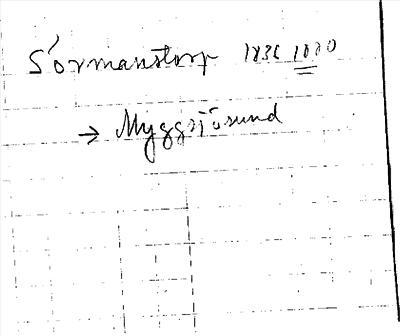 Sörmanstorp 1836 1880
→ Myggsjösund